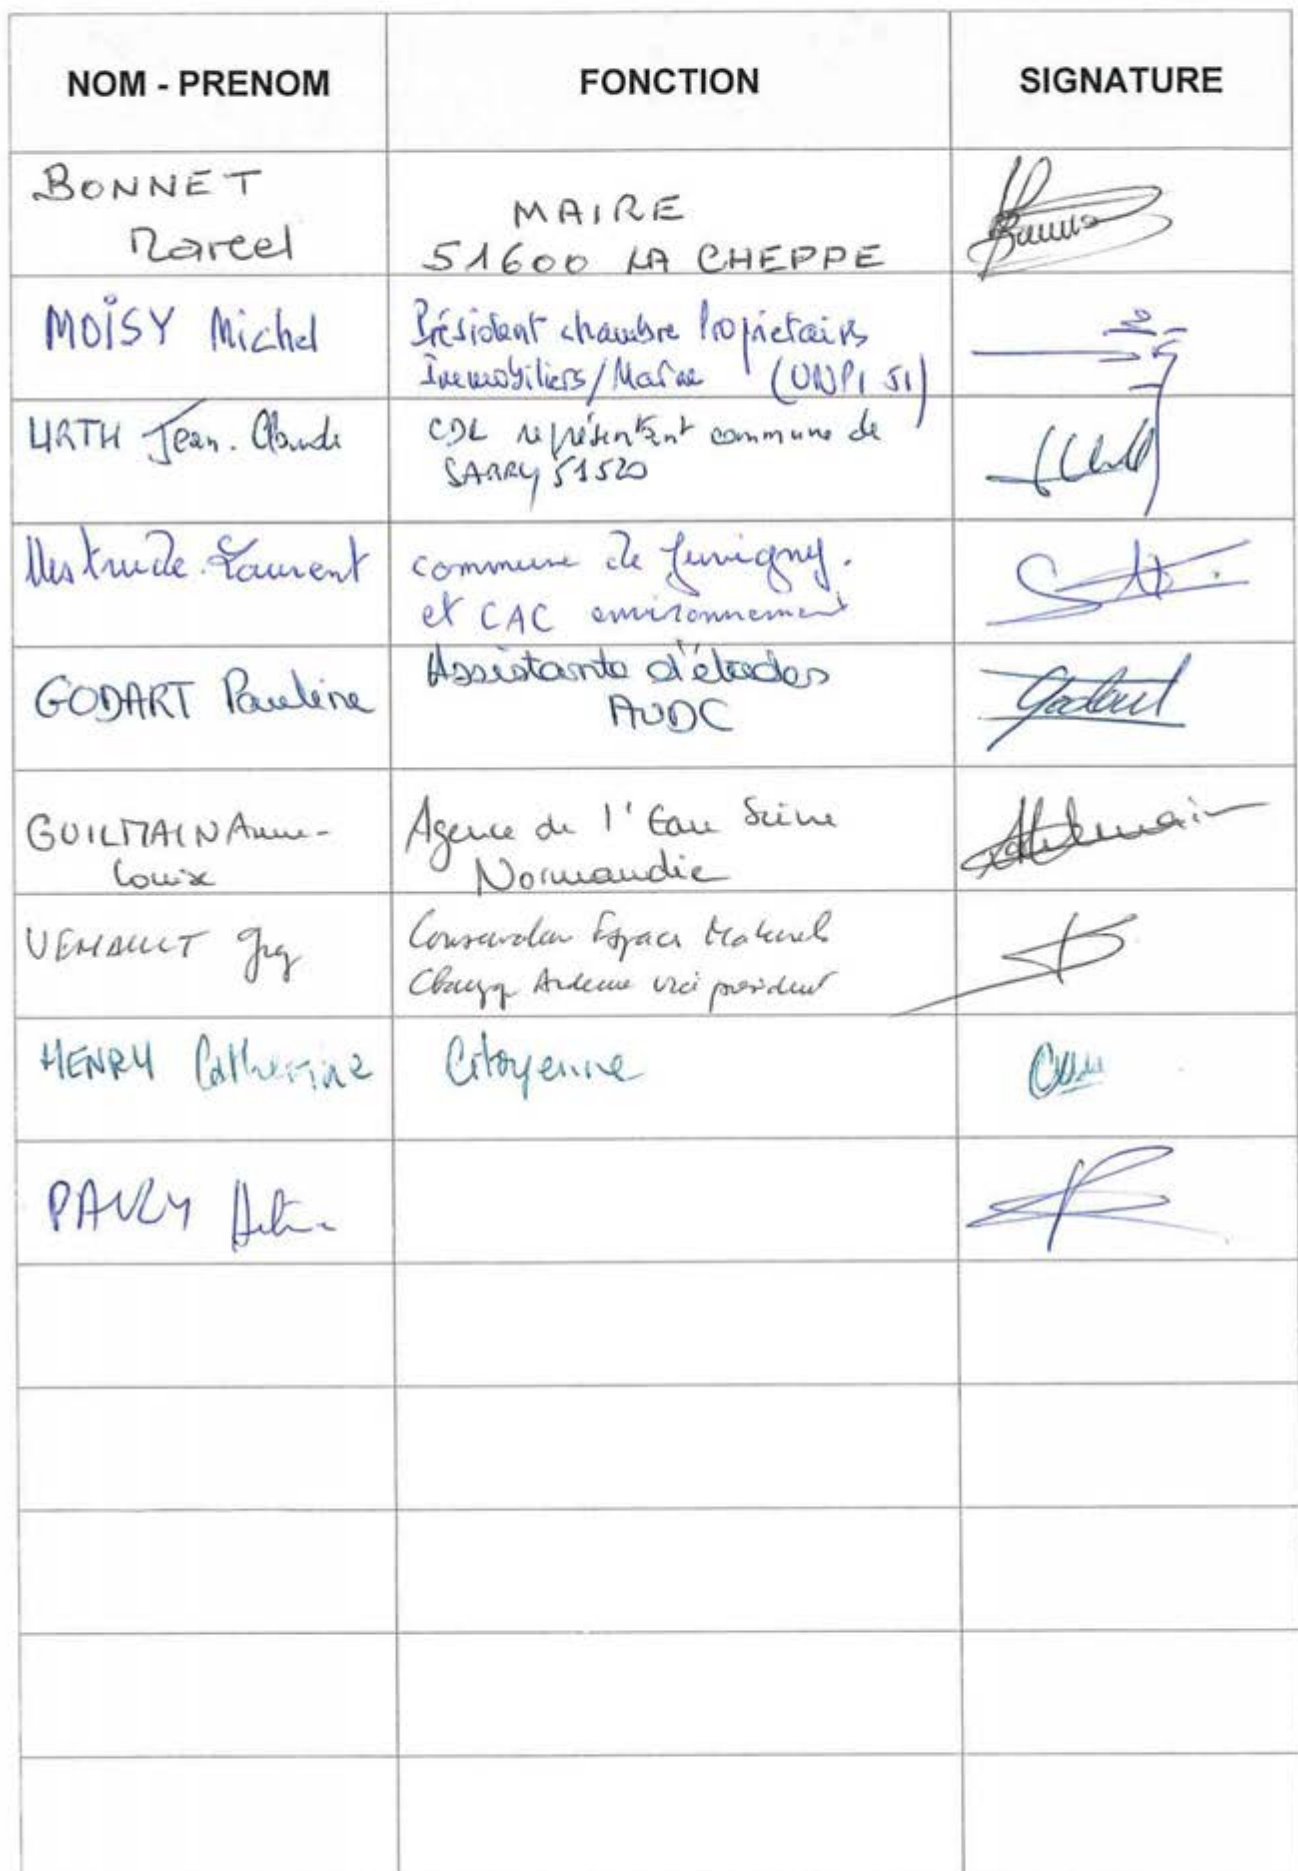 NOM - PRENOM
FONCTION
SIGNATURE
BONNET
Marcel
MAIRE
51600 LA CHEPPE
MOISY Michel
Président chambre Propriétaires
Immobiliers/Marne (UNPI 51)
URTH Jean-Claude
CDL représentant commune de
SARRY 51520
Laurent
commune de Juvigny.
et CAC environnement
GODART Pauline
Assistante d'études
AUDC
GUILMAIN Anne-
Louise
Agence de l'Eau Seine
Normandie
Greg
Conservatoire Espaces Naturels
Champ Ardenne vice président
HENRY Catherine
Citoyenne
PAULY